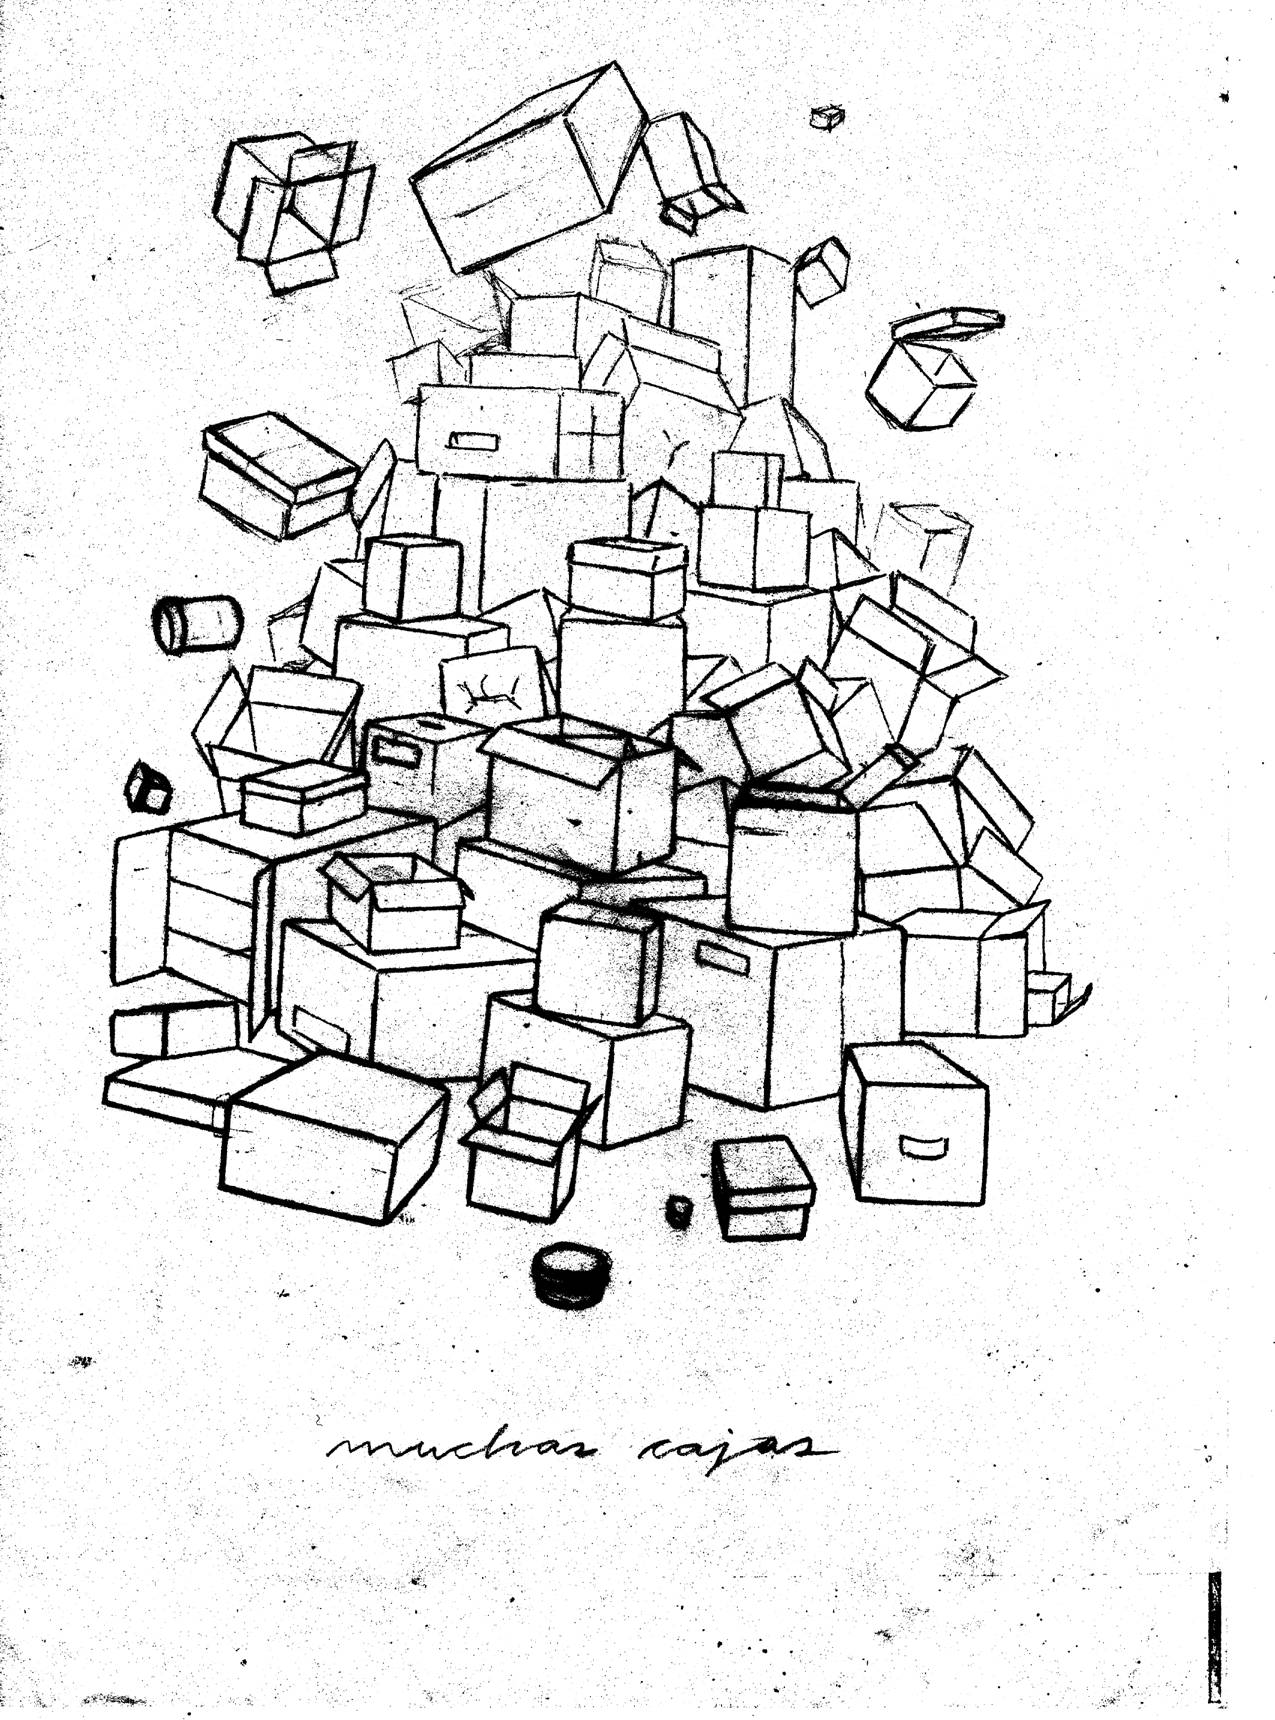 muchas cajas